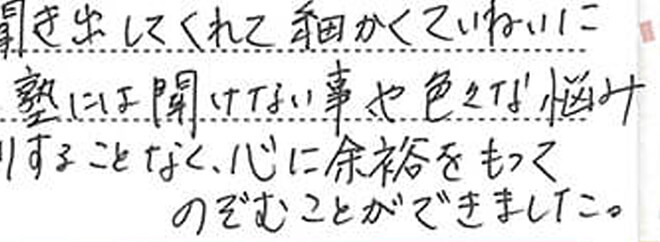 聞き出してくれて細かくていねいに
塾には聞けない事や色々な悩み
りすることなく、心に余裕をもって
のぞむことができました。